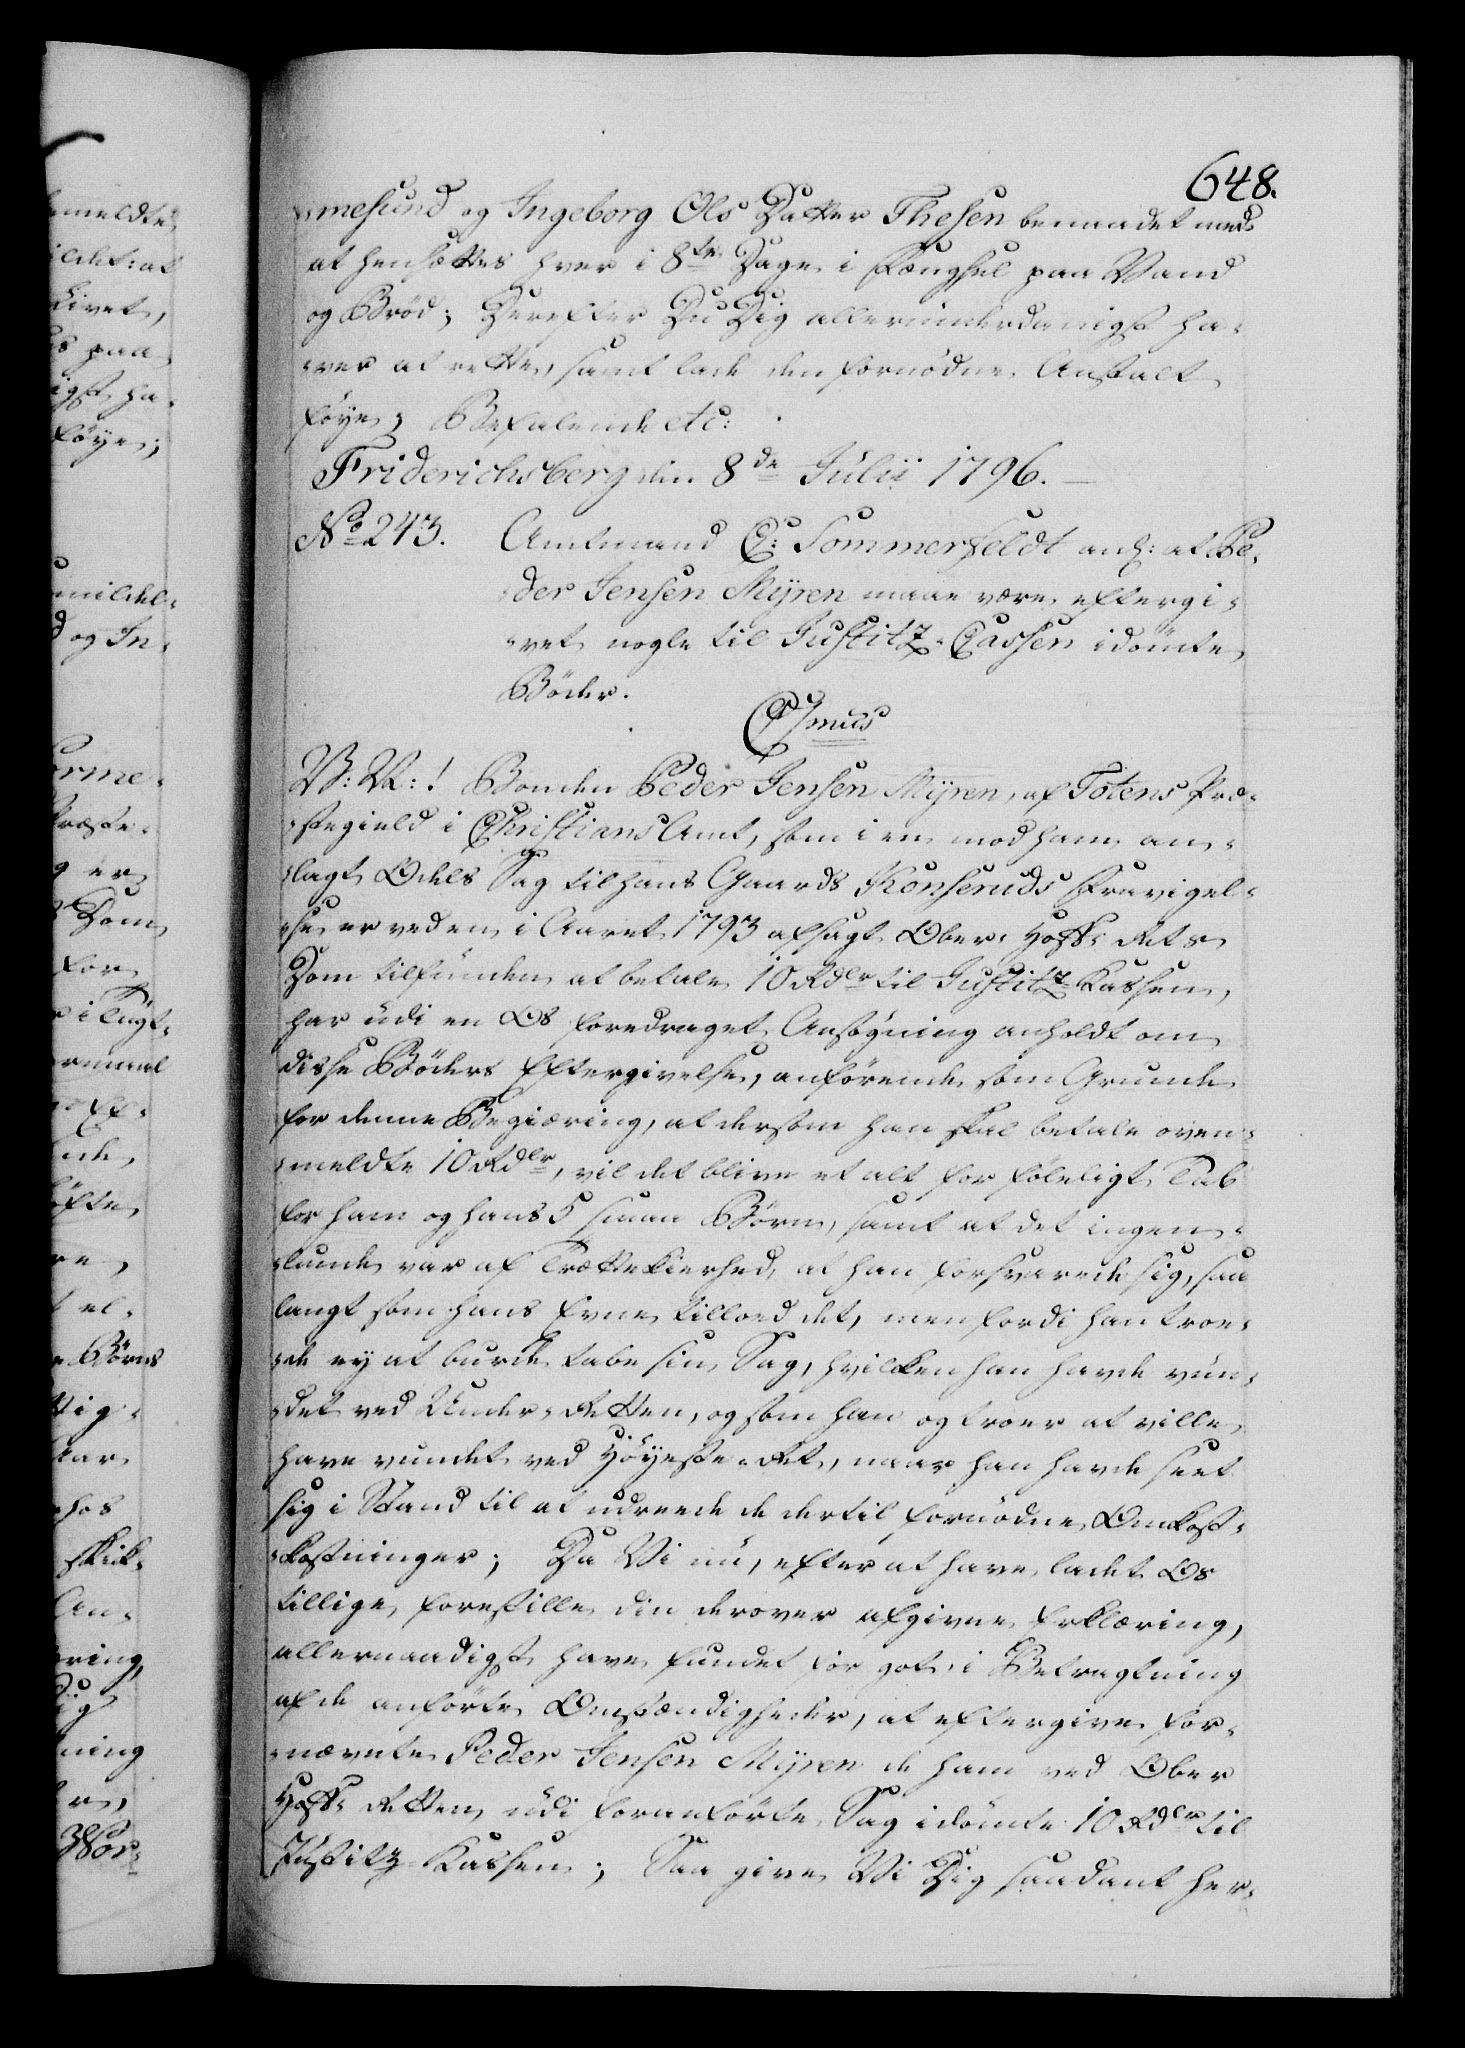 648.
:mesund og Ingeborg Ols Datter Thesen benaadet med
at hensættes hver i 8te Dage i Fængsel paa Vand
og Brød; Derefter Du Dig allerunderdanigst ha-
:ver at rette, samt lade den fornødne Anstalt
føye; Befalende etc:
Friderichsberg den 8de Julii 1796.
No 243. Amtmand C: Sommerfeldt anh: at Pe-
:der Jensen Mÿren maae være eftergi-
:vet nogle til Justitz-Cassen idømte
Bøder.
C7mus
V: V:! Bonden Peder Jensen Mÿren, af Totens Præ-
:stegield i Christians Amt, som i en mod ham an-
:lagt Odels Sag til hans Gaards Konseruds Fravigel-
:se, er ved en i Aaret 1793 afsagt Ober-Hof-Rets
Dom tilfunden at betale 10 Rdlr til Justitz-Kassen,
har udi en Os foredraget Ansøgning anholdt om
disse Bøders Eftergivelse, anførende som Grunde
for denne Begiæring, at dersom han skal betale oven-
:meldte 10 Rdlr, vil det blive et alt for føleligt Tab
for ham og hans 5 smaa Børn, samt at det ingen-
:lunde var af Trættekierhed, at han forsvarede sig, saa
langt som hans Evne tillod det, men fordi han troe-
:de ey at burde tabe sin Sag, hvilken han havde vun-
:det ved Under-Retten, og som han og troer at ville
have vundet ved Høyeste-Ret, naar han havde seet
sig i Stand til at udreede de dertil fornødne Omkost-
:kostninger; Da Vi nu, efter at have ladet Os
tillige forestille din derover afgivne Erklæring,
allernaadigst have fundet for got, i Betragtning
af de anførte Omstændigheder, at eftergive for-
:nævnte Peder Jensen Mÿren de ham ved Ober
Hof-Retten udi foranførte Sag idømte 10 Rdlr til
Justitz-Kassen; Saa give Vi Dig saadant her-